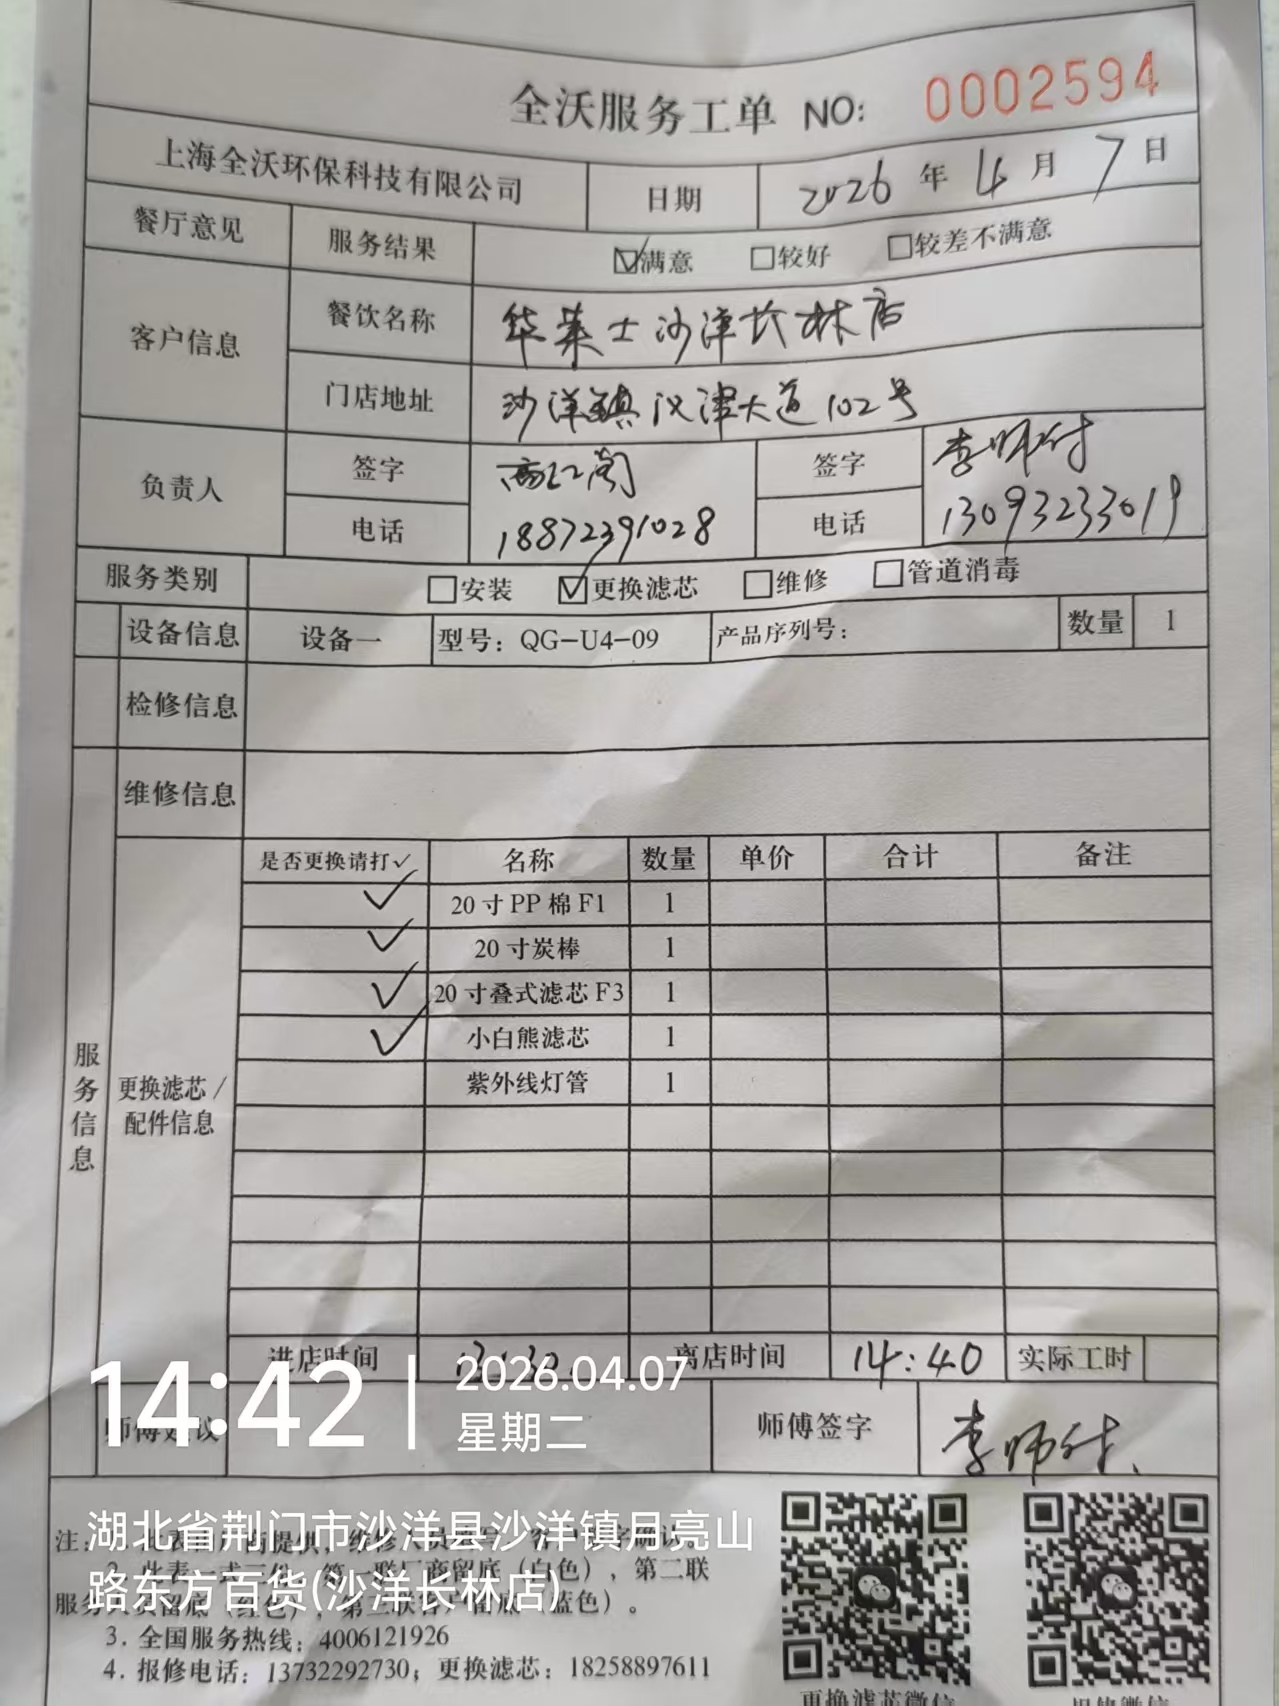 全沃服务工单 NO: 0002594
上海全沃环保科技有限公司 日期 2026 年 4 月 7 日
餐厅意见 服务结果 ☑满意 □较好 □较差不满意
客户信息 餐饮名称 华莱士沙洋长林店
门店地址 沙洋镇汉津大道102号
负责人 签字 签字 李师付
电话 18872391028 电话 13093233019
服务类别 □安装 ☑更换滤芯 □维修 □管道消毒
设备信息 设备一 型号：QG-U4-09 产品序列号： 数量 1
检修信息
维修信息
服务信息
更换滤芯/配件信息
是否更换请打✓ 名称 数量 单价 合计 备注
✓ 20寸PP棉F1 1
✓ 20寸炭棒 1
✓ 20寸叠式滤芯F3 1
✓ 小白熊滤芯 1
紫外线灯管 1
进店时间 离店时间 14:40 实际工时
师傅建议 师傅签字 李师付
14:42 2026.04.07
星期二
湖北省荆门市沙洋县沙洋镇月亮山
路东方百货(沙洋长林店)
注：
2. 此表一式三份，第一联厂商留底（白色），第二联
服务 留底（红色），第三联客户留底（蓝色）。
3. 全国服务热线：4006121926
4. 报修电话：13732292730；更换滤芯：18258897611
更换滤芯微信